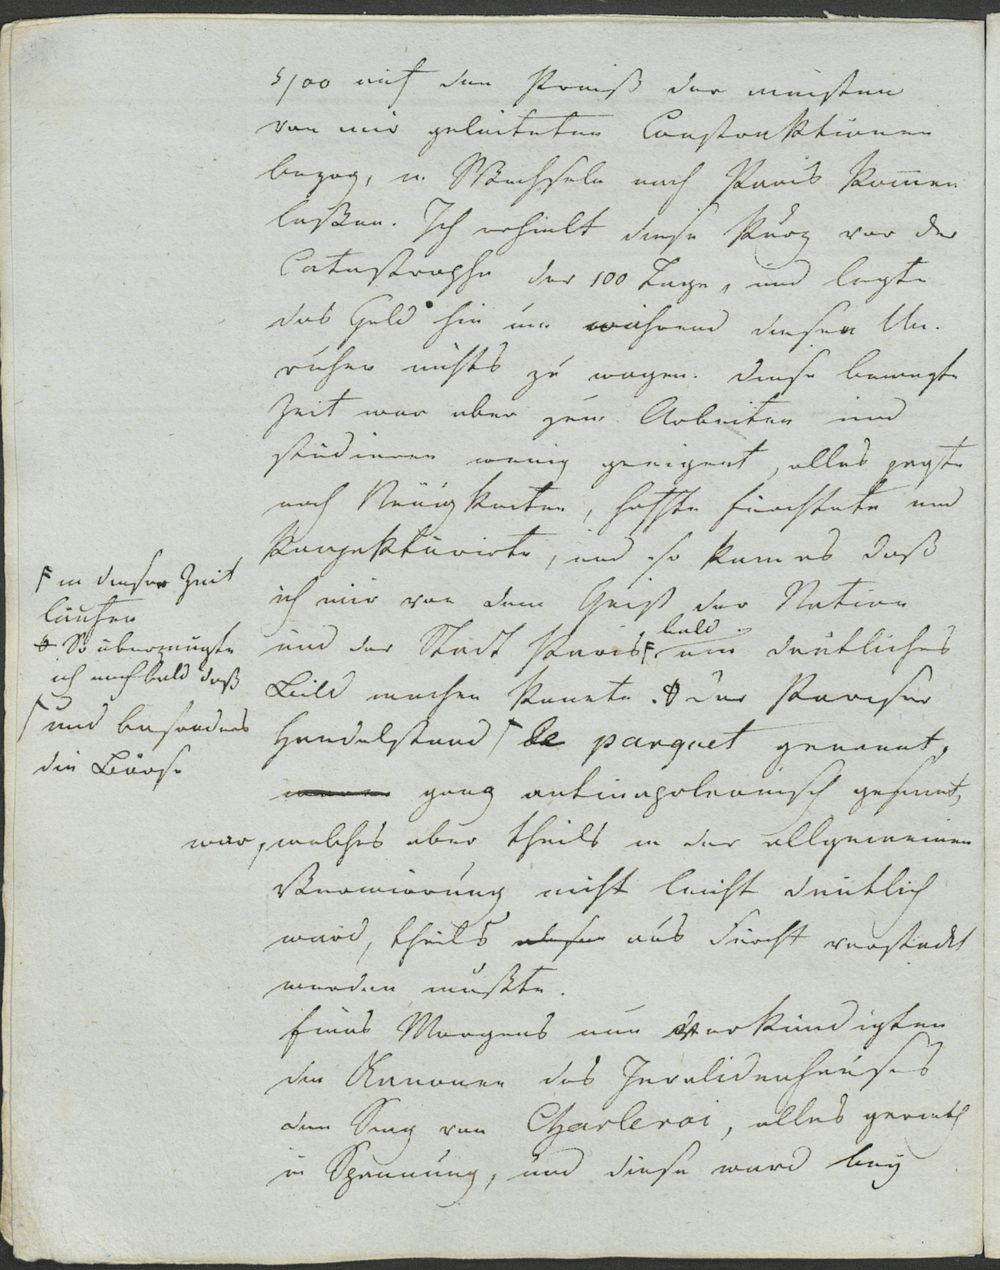 5/00 auf den Preiß der meisten
von mir geleiteten Construktionen
bezog, in Wechseln nach Paris kom̄en
laßen. Ich erhielt diese kurz vor der
Catastrophe der 100 Tage, und legte
das Geld hin um während diesen Un-
ruhen nichts zu wagen. diese bewegte
Zeit war aber zum Arbeiten und
studieren wenig geeignet, alles jagte
nach Neuigkeiten, hoffte fürchtete und
konjekturirte, und so kam es daß
ich mir von dem Geist der Nation
und der Stadt Paris bald ein deutliches
Bild machen konnte. der Pariser
Handelsstand le parquet genannt,
waren ganz antinapoleonisch gesinnt,
war, welches aber theils in der allgemeinen
Verwirrung nicht leicht deutlich
ward, theils aus Furcht versteckt
werden mußte.
Eines Morgens nun verkündigten
die Kanonen des Invalidenhauses
den Sieg von Charleroi, alles gerieth
in Spannung, und diese ward bey
in dieser Zeit
läuften
So überzeugte
ich mich bald daß
und besonders
die Börse